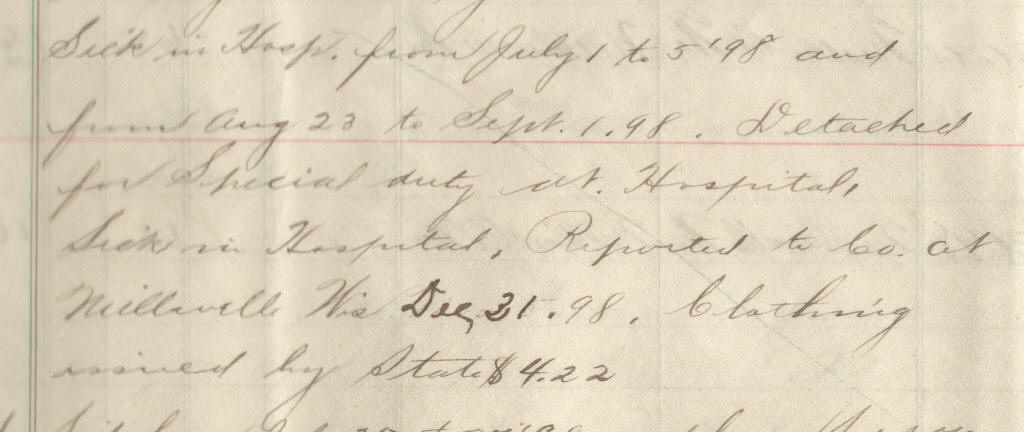 Sick in Hosp. from July 1 to 5 '98 and
from Aug 23 to Sept. 1. 98. Detached
for Special duty at. Hospital,
Sick in Hospital, Reported to Co. at
Neillsville Wis Dec, 31. 98. Clothing
issued by State $4.22